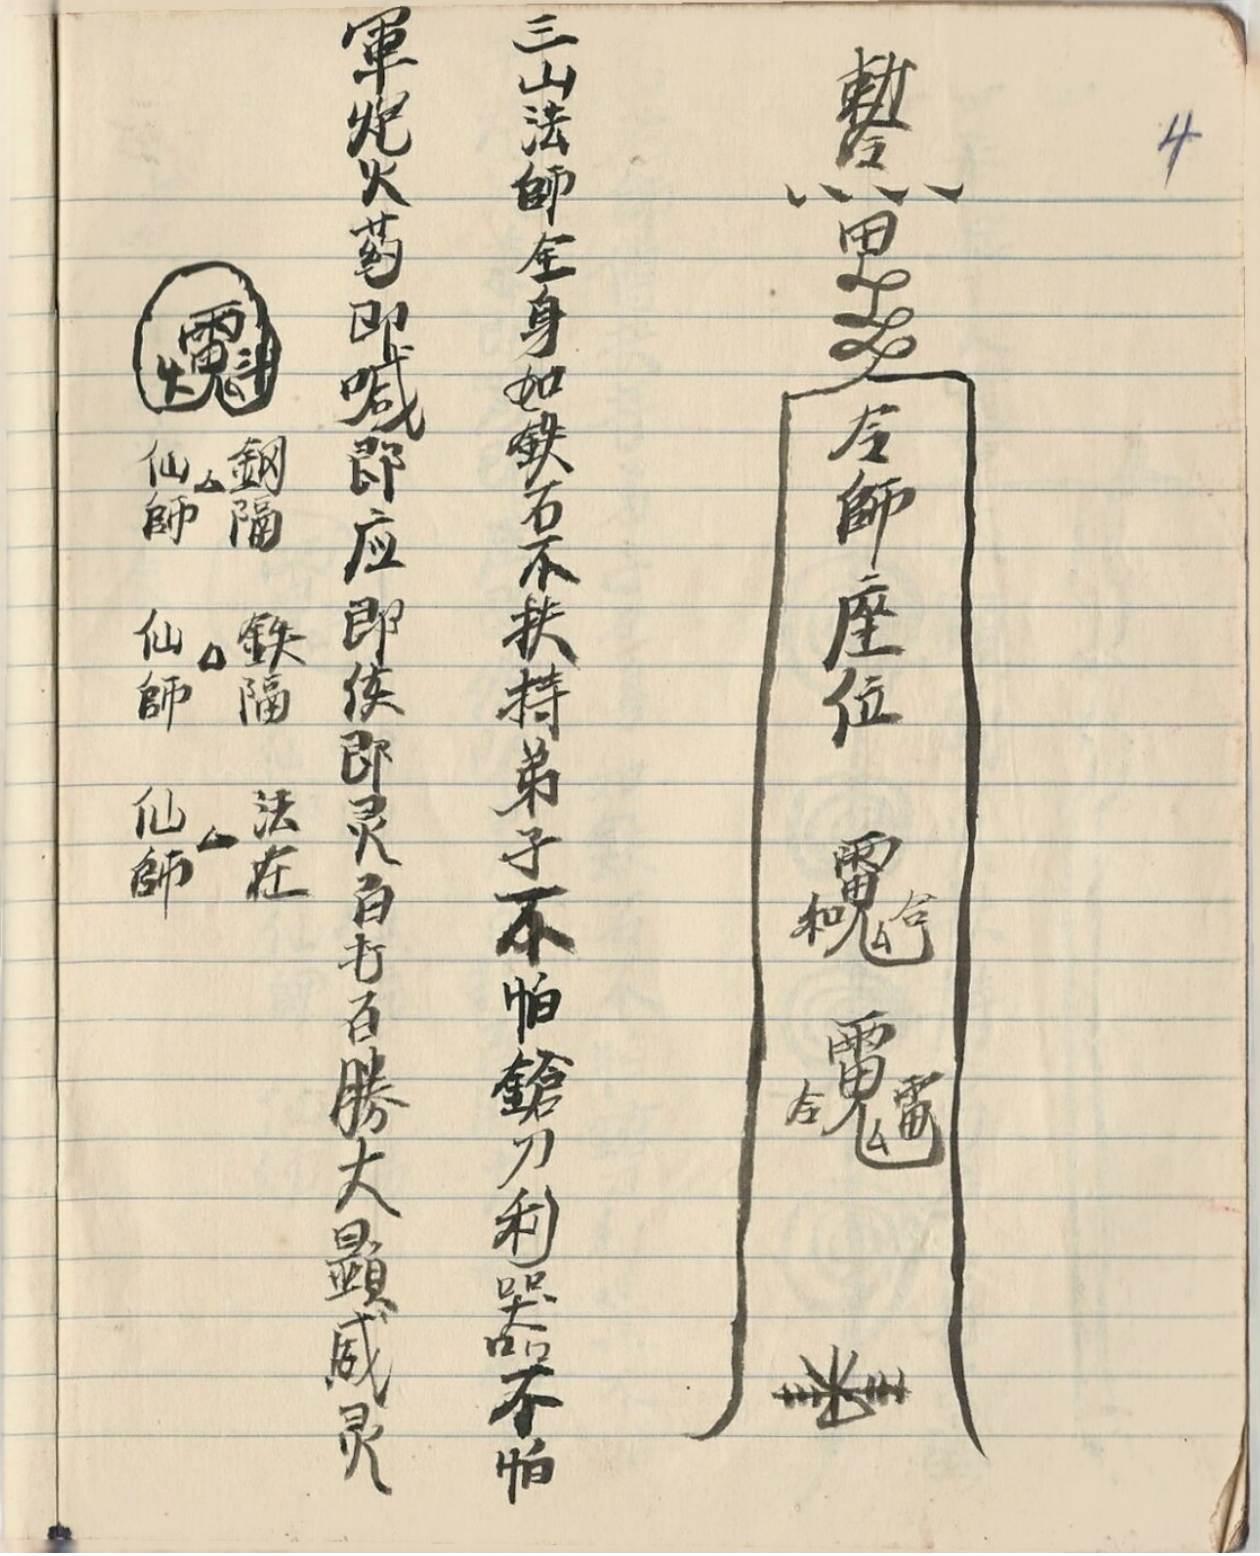 4
勅令
田
令師座位
和合
令雷
三山法師全身如鉄石不扶持弟子不怕鎗刀利器不怕
軍炮火药即喊即应即侯即灵百打百勝大顕威灵
鋼隔仙師
鉄隔仙師
法在仙師